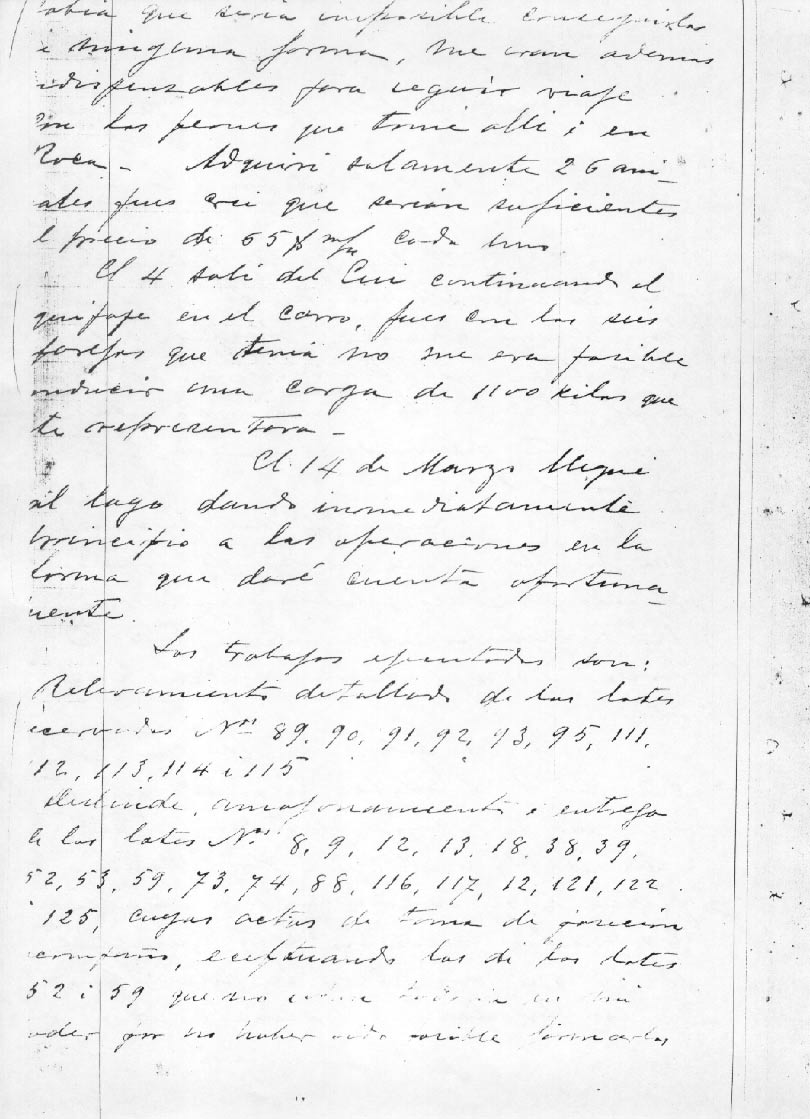 abia que seria imposible conseguirlos
e ninguna forma, me eran ademas
dispensables para seguir viaje
on los peones que tomé alli i en
Roca – Adquiri solamente 26 ani-
ales pues crei que serian suficientes
l precio de 65 $ m/n cada uno
El 4 sali del Cui continuando el
quipaje en el carro, pues con las seis
parejas que tenia no me era posible
nducir una carga de 1100 kilos que
te representara –
El 14 de Marzo llegué
al lago dando inmediatamente
principio a las operaciones en la
forma que daré cuenta oportuna-
mente.
Los trabajos ejecutados son:
Relevamiento detallado de los lotes
eservados Nos 89, 90, 91, 92, 93, 95, 111,
12, 113, 114 i 115
Deslinde, amojonamiento i entrega
de los lotes Nos 8, 9, 12, 13, 18, 38, 39,
52, 53, 59, 73, 74, 88, 116, 117, 12, 121, 122
i 125, cuyas actas de toma de posesion
compaño, eceptuando las de los lotes
52 i 59 que no estan todavia en mi
oder por no haber sido posible firmarlas